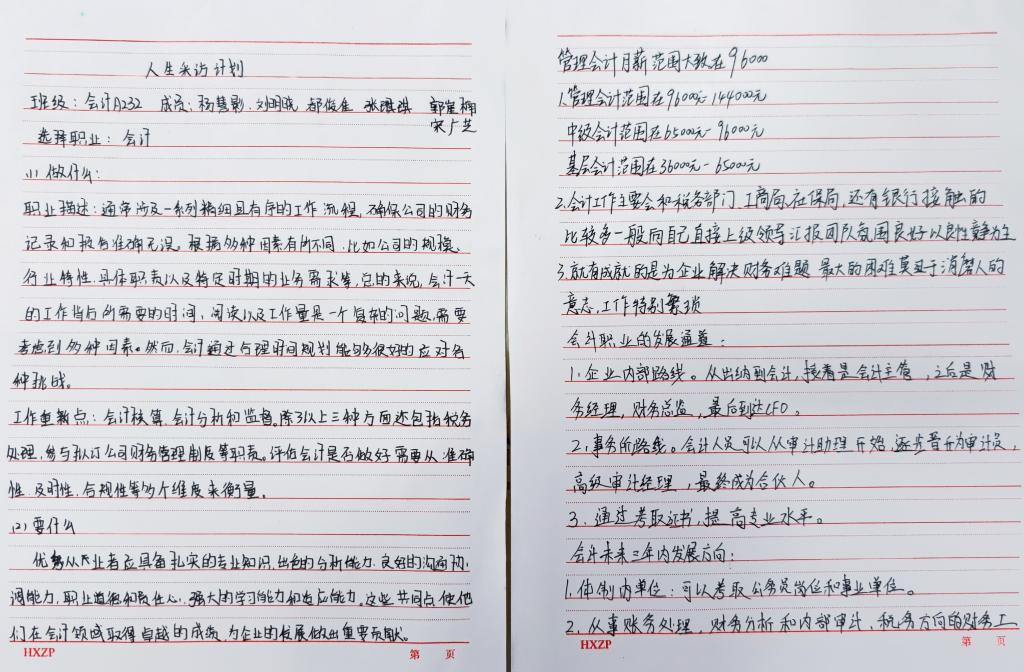 人生采访计划
班级：会计A232 成员：杨慧影、刘明晓 郝俊佳 张琪琪 郭星
宋广芝
选择职业：会计
(1) 做什么：
职业描述：通常涉及一系列精细且有序的工作流程，确保公司的财务
记录和报告准确无误。根据多种因素有所不同，比如公司的规模、
行业特性、具体职责以及特定时期的业务需求等，总的来说，会计一天
的工作背后所需要的时间，阅读以及工作量是一个复杂的问题，需要
考虑到多种因素。然而，会计通过合理时间规划能够很好的应对各
种挑战。
工作重点：会计核算、会计分析和监督。除了以上三种方面还包括税务
处理，参与拟订公司财务管理制度等职责。评估会计是否做好需要从准确
性、及时性、合规性等多个维度来衡量。
(2) 要什么
优秀从业者应具备扎实的专业知识、出色的分析能力、良好的沟通协
调能力、职业道德和责任心、强大的学习能力和适应能力。这些共同点使他
们在会计领域取得卓越的成绩，为企业的发展做出重要贡献。
HXZP 第 页
管理会计月薪范围大致在96000
1.管理会计范围在96000-144000元
中级会计范围在65000元-96000元
基层会计范围在36000元-65000元
2.会计工作主要会和税务部门、工商局、社保局，还有银行接触的
比较多一般向自己直接上级领导汇报团队氛围良好以良性竞争为主
3.就有成就的是为企业解决财务难题 最大的困难莫过于消磨人的
意志，工作特别繁琐
会计职业的发展通道：
1.企业内部路线。从出纳到会计，接着是会计主管，之后是财
务经理，财务总监，最后到达CFO。
2.事务所路线。会计人员可以从审计助理开始，逐步晋升为审计员，
高级审计经理，最终成为合伙人。
3.通过考取证书，提高专业水平。
会计未来三年内发展方向：
1.体制内单位：可以考取公务员岗位和事业单位。
2.从事账务处理，财务分析和内部审计、税务方向的财务工
HXZP 第 页